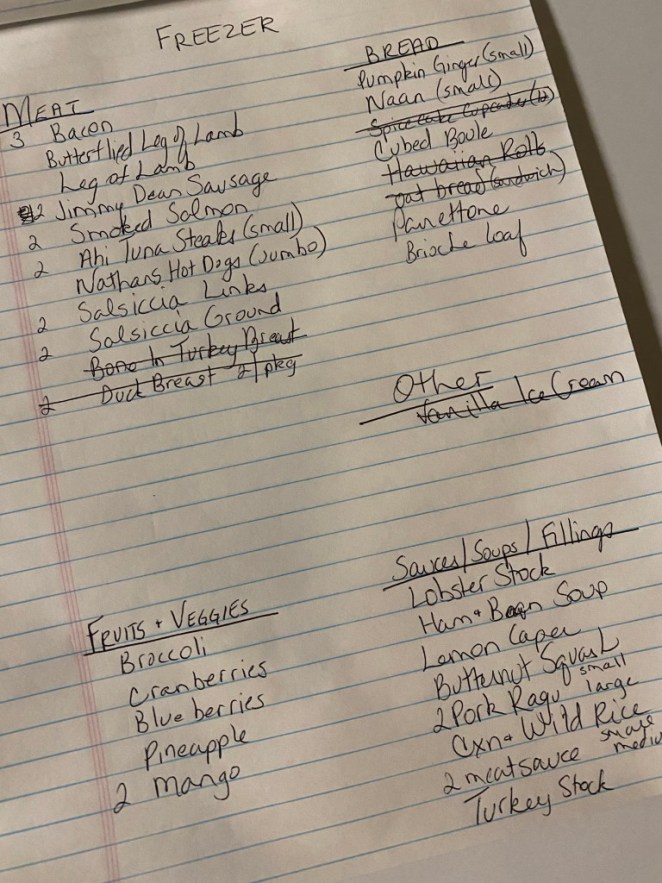 FREEZER
MEAT
3 Bacon
Butterflied Leg of Lamb
Leg of Lamb
2 Jimmy Dean Sausage
2 Smoked Salmon
2 Ahi Tuna Steaks (small)
Nathans Hot Dogs (Jumbo)
2 Salsiccia Links
2 Salsiccia Ground
Bone In Turkey Breast
2 Duck Breast 2/pkg
BREAD
Pumpkin Ginger (small)
Naan (small)
Spice Cake Cupcakes (12)
Cubed Boule
Hawaiian Rolls
oat bread (sandwich)
Panettone
Brioche loaf
Other
Vanilla Ice Cream
FRUITS + VEGGIES
Broccoli
Cranberries
Blueberries
Pineapple
2 Mango
Sauces/Soups/Fillings
Lobster Stock
Ham + Bean Soup
Lemon Caper
Butternut Squash
2 Pork Ragu small large
Cxn + Wild Rice
2 meat sauce small mediu
Turkey Stock